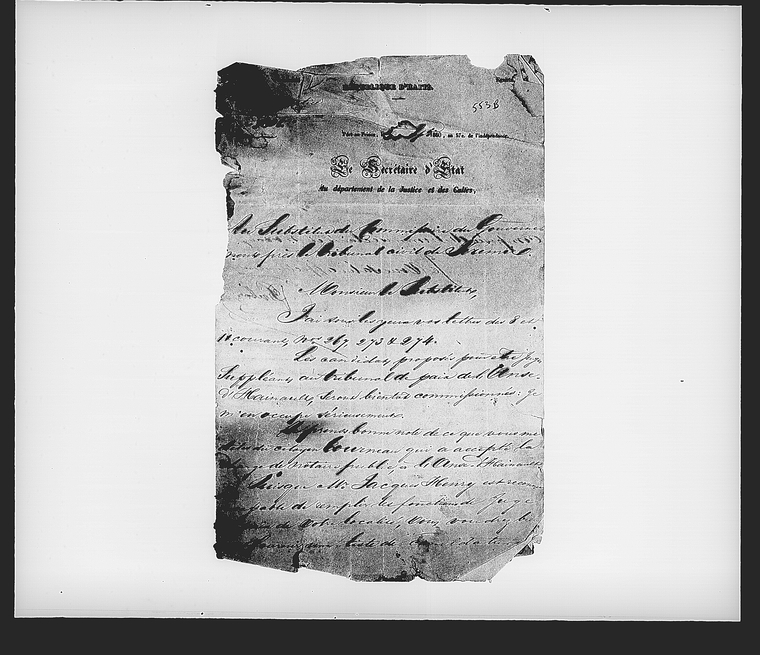 RÉPUBLIQUE D'HAITI.
553 B
Port-au-Prince, an 57e. de l'indépendance.
Le Secrétaire d'Etat
Au département de la Justice et des Cultes,
Au Substitut du Commissaire du Gouverne
près le tribunal civil de Jérémie.
Monsieur le Substitut,
J'ai sous les yeux vos lettres des 8 et
10 courant, Nos 267, 273 & 274.
Les candidats proposés pour être juge
Suppléant au tribunal de paix de l'Anse-
d'Hainault, seront bientôt commissionnés; je
m'en occupe sérieusement.
Je prends bonne note de ce que vous me
dites du citoyen Courneau qui a accepté la
charge de notaire public, à l'Anse d'Hainault.
Puisque Mr. Jacques Henry est
de remplir les fonctions de juge
de votre localité, vous voudrez b
une liste de candidats